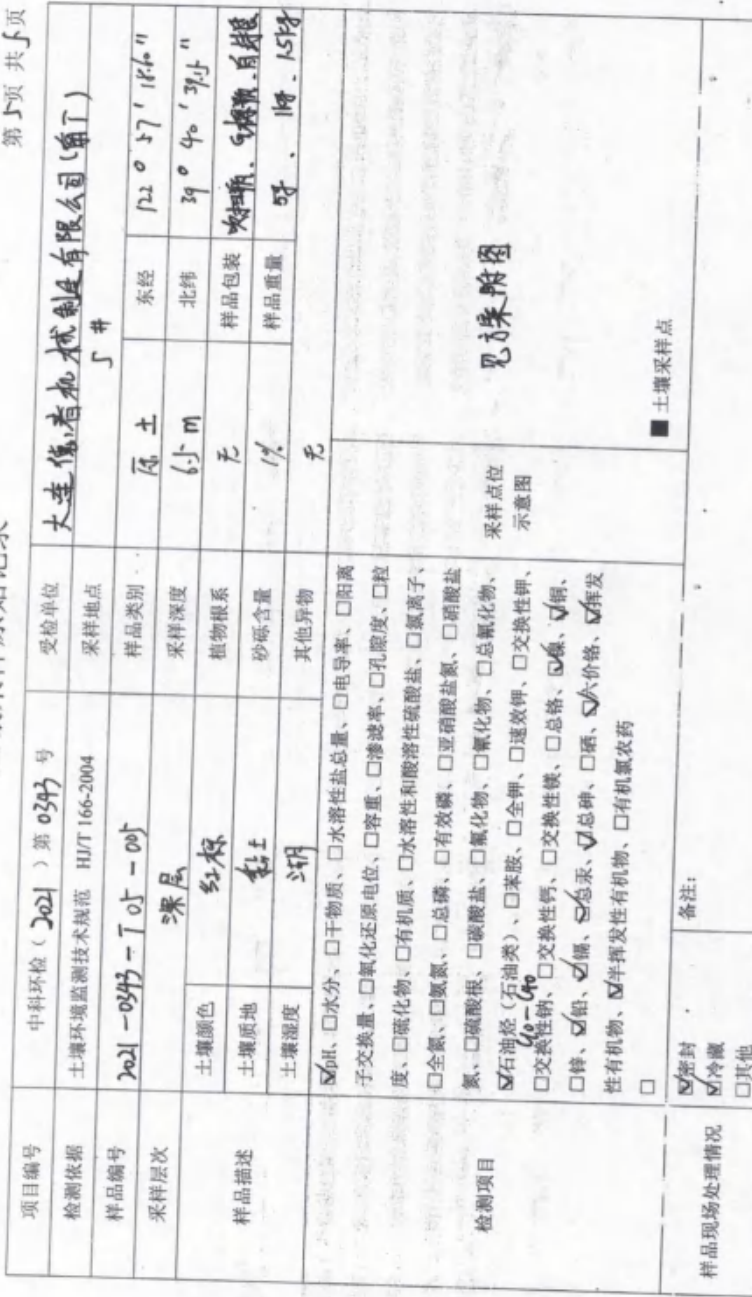 第5页 共5页
项目编号 中科环检（2021）第 0343 号 受检单位 大连 机械制造有限公司
检测依据 土壤环境监测技术规范 HJ/T 166-2004 采样地点 5#
样品编号 2021-0343-T05-005 样品类别 土 东经 122° 57′ 18.60″
采样层次 深层 采样深度 6.5m 北纬 39° 40′ 39.15″
样品描述 土壤颜色 红棕 植物根系 无 样品包装 吹扫瓶、棕瓶、自封袋
土壤质地 黏土 砂砾含量 1% 样品重量 5g、1kg、1.5kg
土壤湿度 潮 其他异物 无
检测项目
☑pH、□水分、□干物质、□水溶性盐总量、□电导率、□阳离
子交换量、□氧化还原电位、□容重、□渗滤率、□孔隙度、□粒
度、□硫化物、□有机质、□水溶性和酸溶性硫酸盐、□氯离子、
□全氮、□氨氮、□总磷、□有效磷、□亚硝酸盐氮、□硝酸盐
氮、□硫酸根、□碳酸盐、□氟化物、□氰化物、□总氰化物、
☑石油烃（石油类）、□苯胺、□全钾、□速效钾、□交换性钾、
C10-C40
□交换性钠、□交换性钙、□交换性镁、□总铬、☑镍、☑铜、
□锌、☑铅、☑镉、☑总汞、☑总砷、□硒、☑六价铬、☑挥发
性有机物、☑半挥发性有机物、□有机氯农药
□
采样点位
示意图
见方案附图
■ 土壤采样点
样品现场处理情况
☑密封
☑冷藏
□其他
备注：